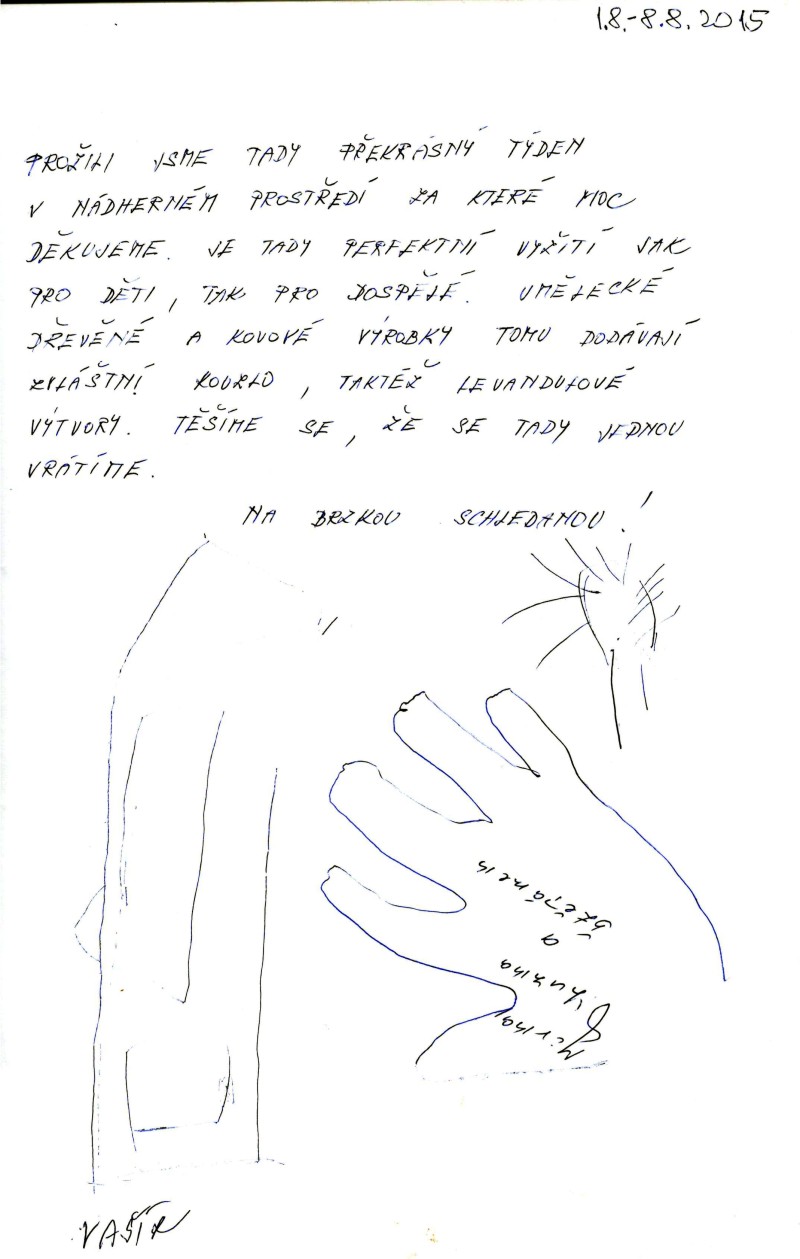 1.8.-8.8.2015
PROŽILI JSME TADY PŘEKRÁSNÝ TÝDEN
V NÁDHERNÉM PROSTŘEDÍ ZA KTERÉ MOC
DĚKUJEME. JE TADY PERFEKTNÍ VYŽITÍ JAK
PRO DĚTI, TAK PRO DOSPĚLÉ. UMĚLECKÉ
DŘEVĚNÉ A KOVOVÉ VÝROBKY TOMU DODÁVAJÍ
ZVLÁŠTNÍ KOUZLO, TAKTÉŽ LEVANDULOVÉ
VÝTVORY. TĚŠÍME SE, ŽE SE TADY JEDNOU
VRÁTÍME.
NA BRZKOU SCHLEDANOU!
a
VAŠÍK